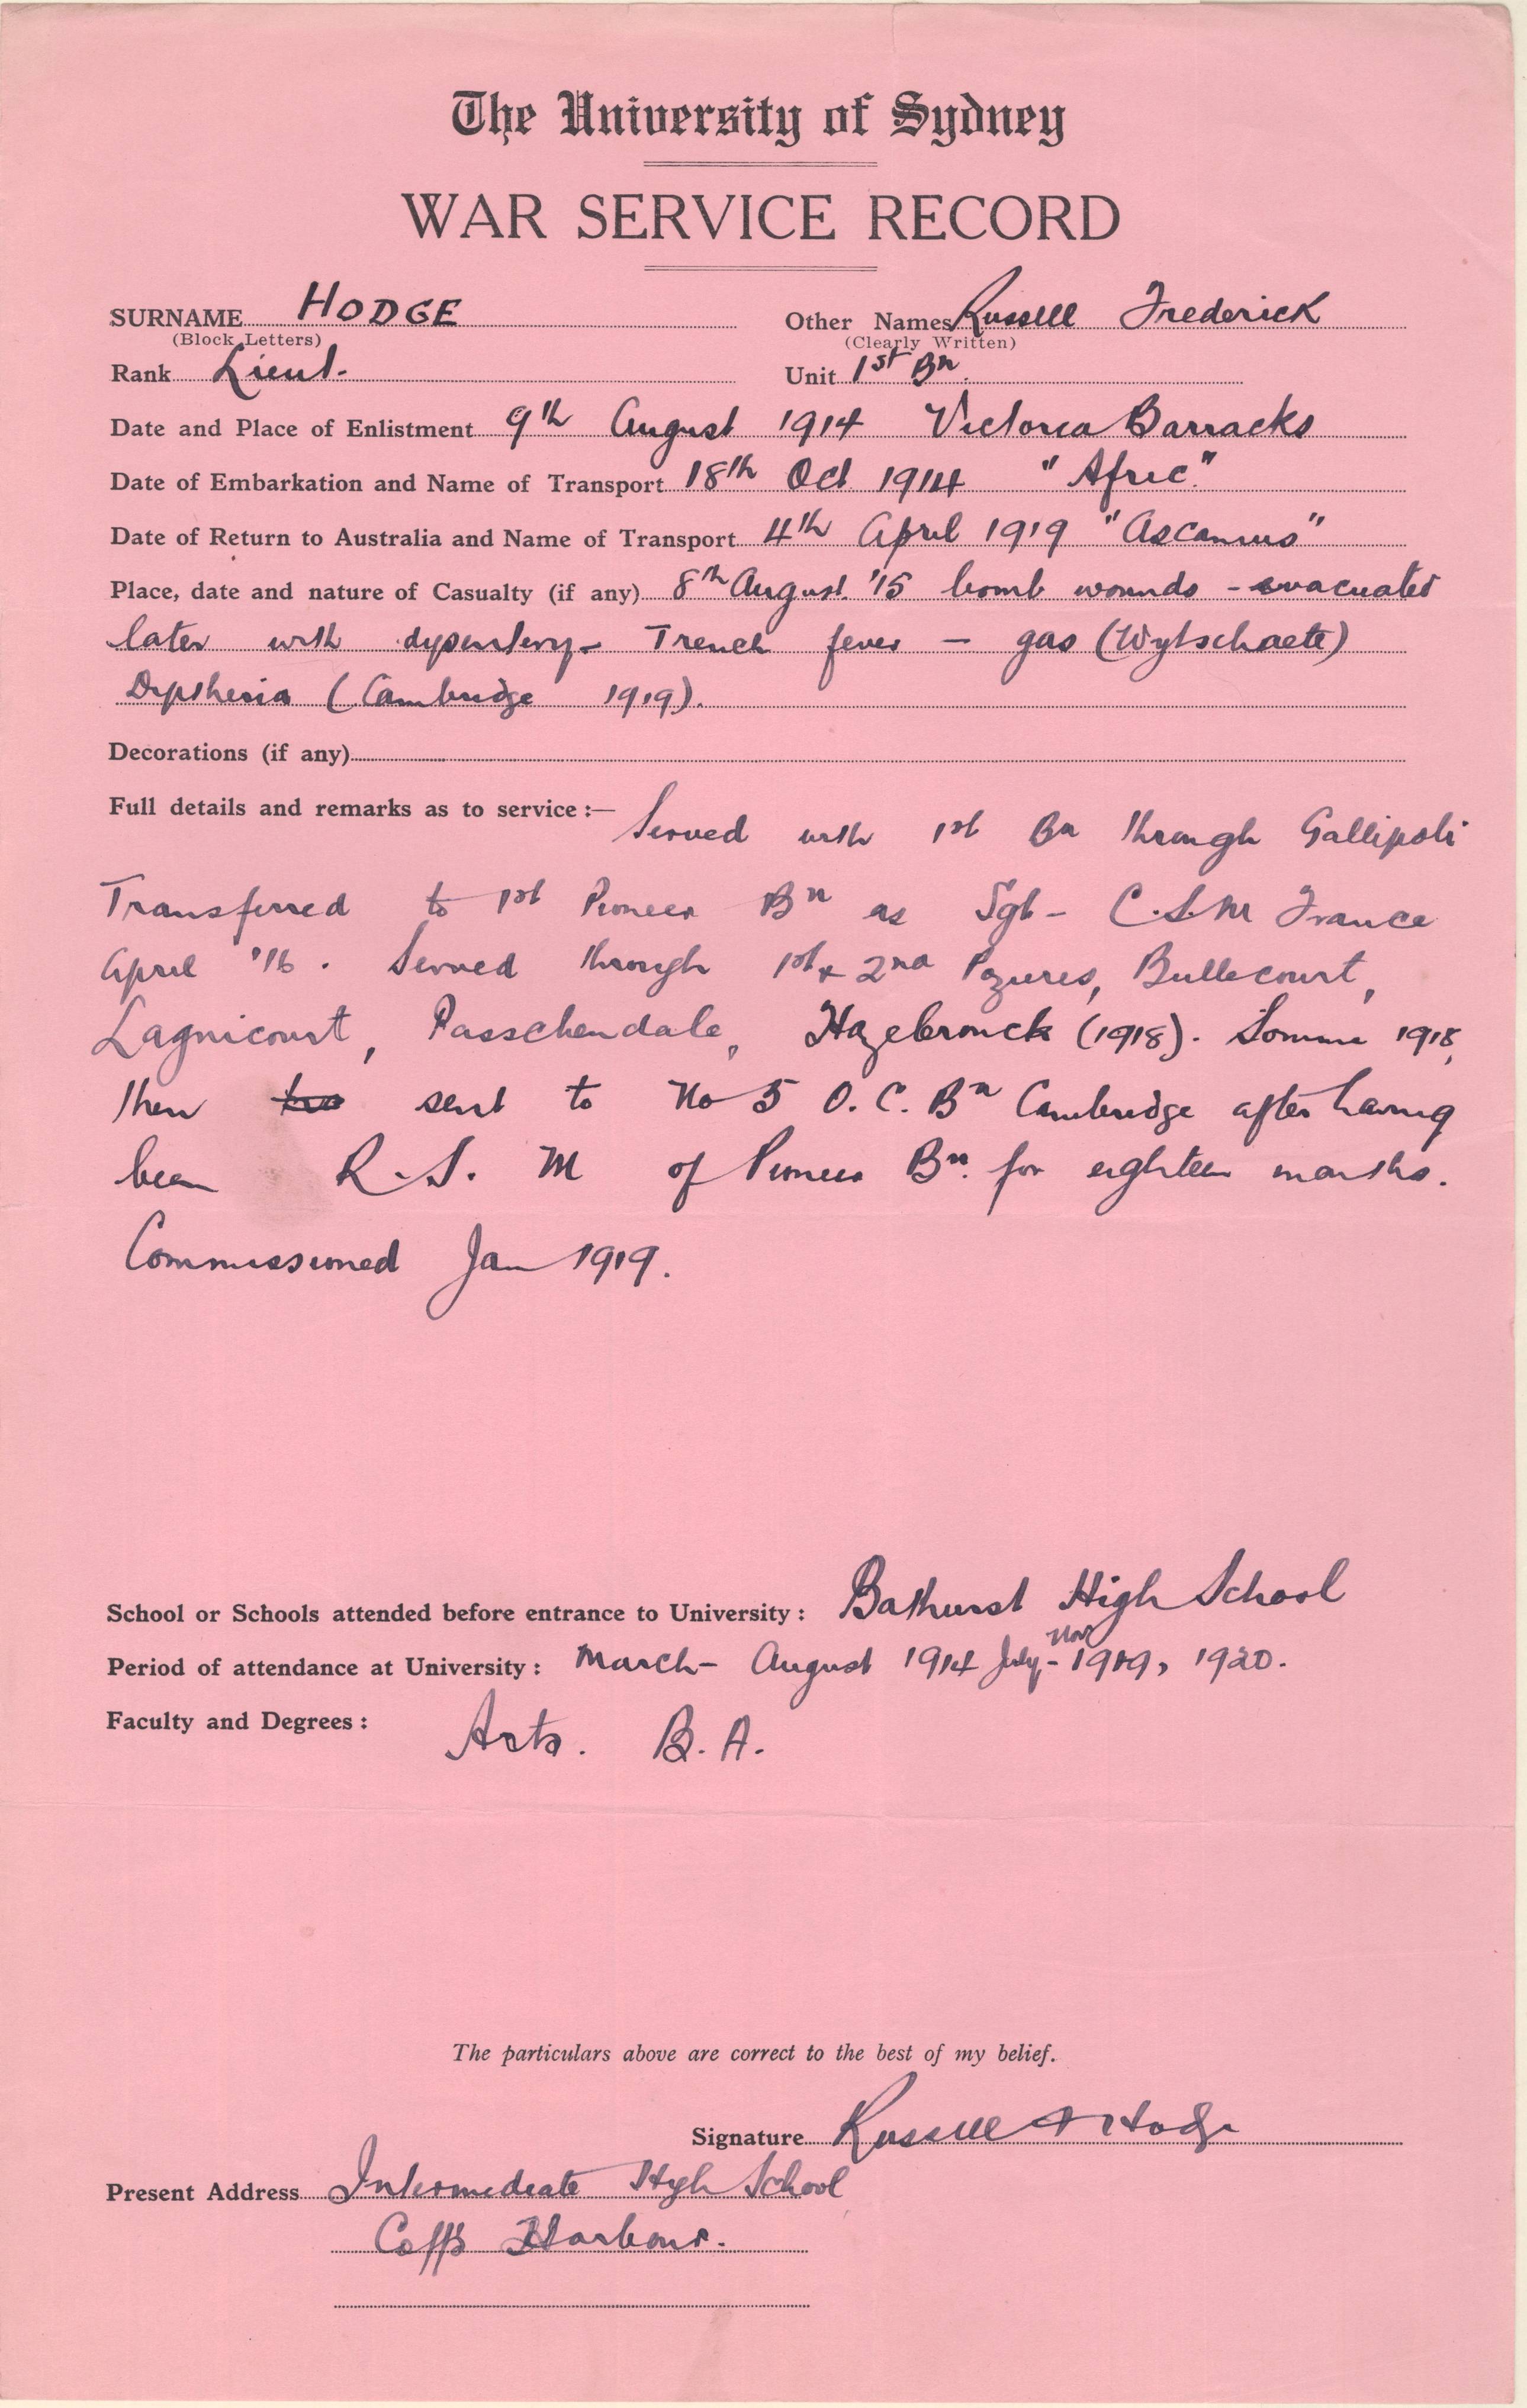 The University of Sydney
WAR SERVICE RECORD
SURNAME HODGE Other Names Russell Frederick
(Block Letters) (Clearly Written)
Rank Lieut. Unit 1st Bn.
Date and Place of Enlistment 9th August 1914 Victoria Barracks
Date of Embarkation and Name of Transport 18th Oct 1914 "Afric."
Date of Return to Australia and Name of Transport 4th April 1919 "Ascanius"
Place, date and nature of Casualty (if any) 8th August '15 bomb wounds - evacuated
later with dysentery - Trench fever - gas (Wytschaete)
Diptheria (Cambridge 1919).
Decorations (if any)
Full details and remarks as to service :— Served with 1st Bn through Gallipoli
Transferred to 1st Pioneer Bn as Sgt - C.S.M France
April '16. Served through 1st & 2nd Pozieres, Bullecourt,
Lagnicourt, Passchendale, Hazebrouck (1918). Somme 1918,
then sent to No 5 O.C. Bn Cambridge after having
been R.S.M of Pioneer Bn. for eighteen months.
Commissioned Jan 1919.
School or Schools attended before entrance to University : Bathurst High School
Period of attendance at University : March - August 1914 July - Nov 1919, 1920.
Faculty and Degrees : Arts. B.A.
The particulars above are correct to the best of my belief.
Signature Russell F Hodge
Present Address Intermediate High School
Coffs Harbour.